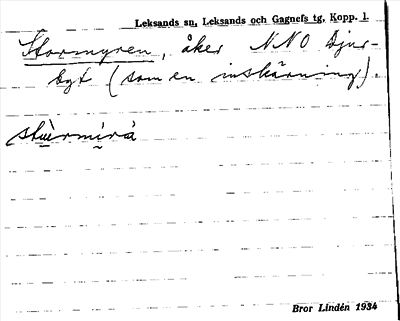 Leksands sn, Leksands och Gagnefs tg, Kopp. l.
Stormyren, åker NNO Djur-
(som en inskärning).
Bror Lindén 1934